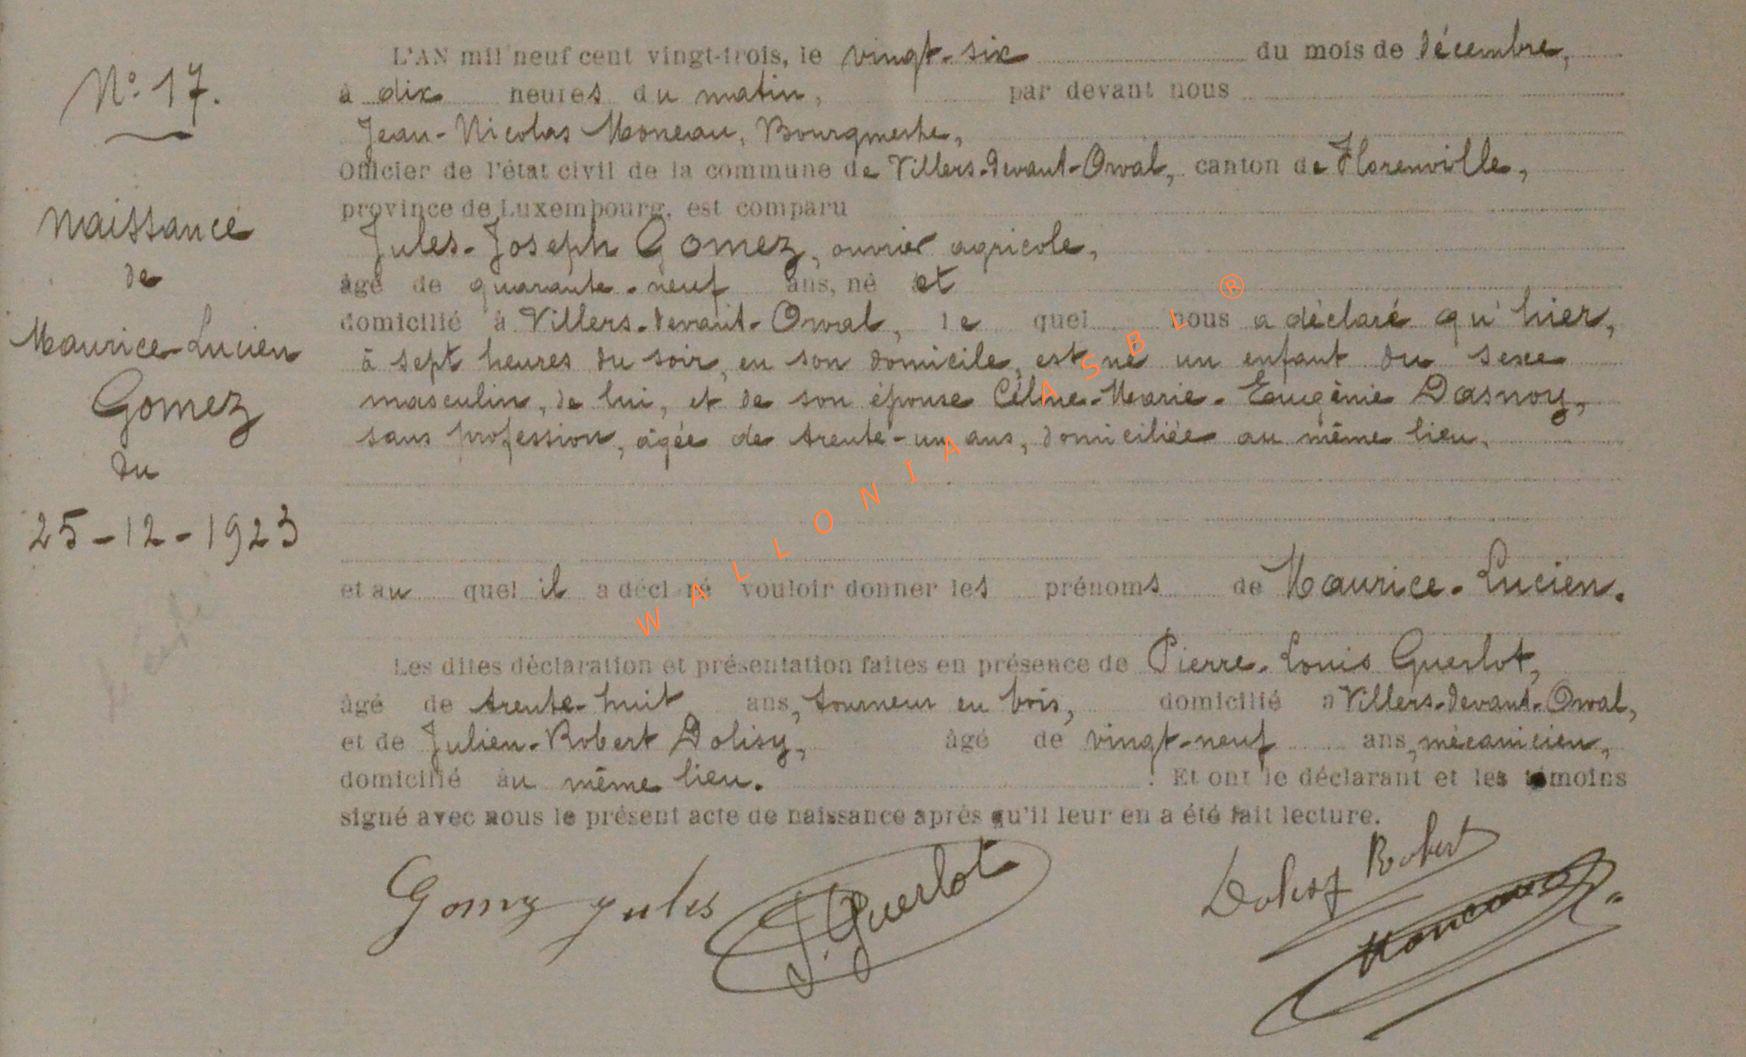 N° 17.
Naissance
de
Maurice-Lucien
Gomez
du
25-12-1923
L'AN mil neuf cent vingt-trois, le vingt-six du mois de décembre,
à dix heures du matin, par devant nous
Jean-Nicolas Moneau, Bourgmestre,
Officier de l'état civil de la commune de Villers-devant-Orval, canton de Florenville,
province de Luxembourg, est comparu
Jules-Joseph Gomez, ouvrier agricole,
âgé de quarante-neuf ans, né et
domicilié à Villers-devant-Orval, le quel nous a déclaré qu'hier,
à sept heures du soir, en son domicile, est né un enfant du sexe
masculin, de lui, et de son épouse Céline-Marie-Eugènie Dasnoy,
sans profession, âgée de trente-un ans, domiciliée au même lieu.
et au quel il a déclaré vouloir donner les prénoms de Maurice-Lucien.
Les dites déclaration et présentation faites en présence de Pierre-Louis Guerlot,
âgé de trente-huit ans, tourneur en bois, domicilié à Villers-devant-Orval,
et de Julien-Robert Dolisy, âgé de vingt-neuf ans, mécanicien,
domicilié au même lieu. Et ont le déclarant et les témoins
signé avec nous le présent acte de naissance après qu'il leur en a été fait lecture.
Gomez jules
Guerlot
Dolisy Robert
Moneau
WALLONIA ASBL ®